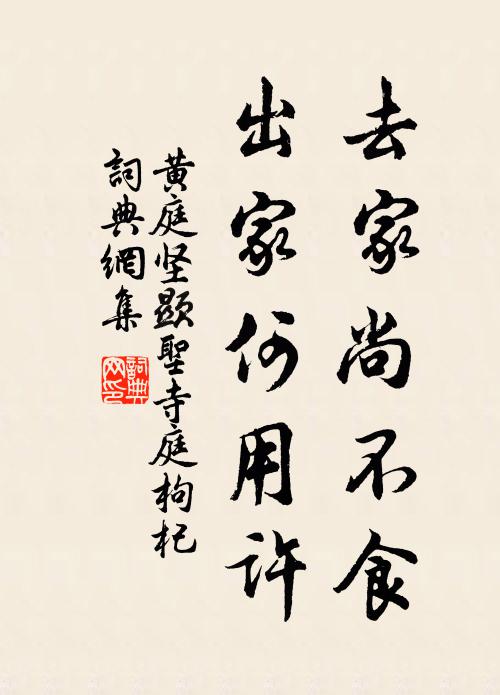 去家尚不食
出家何用许
黄庭坚顯聖寺庭枸杞
詞典網集
詞典网印